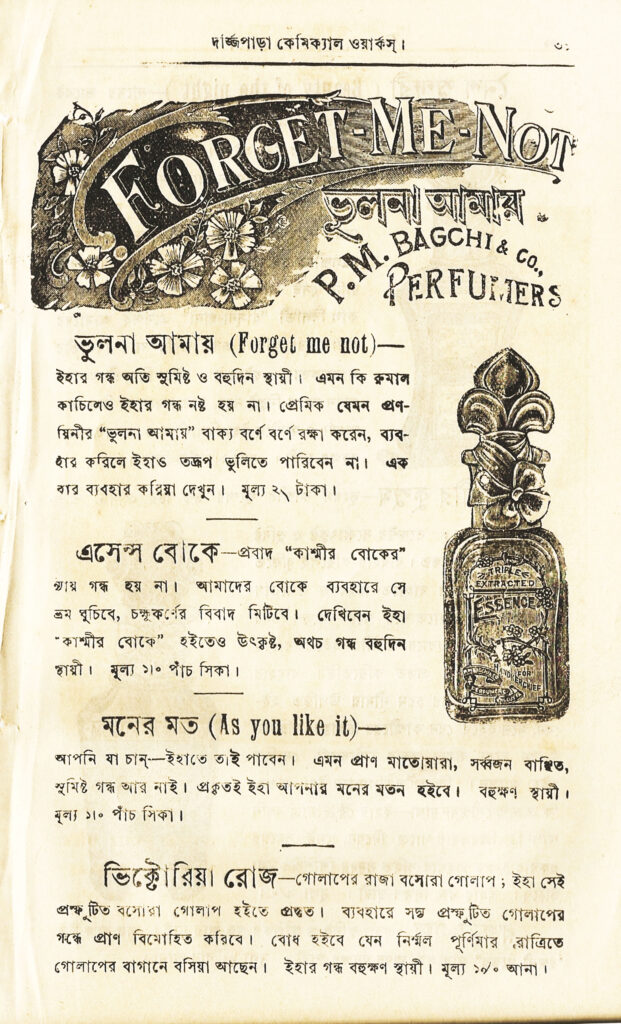 দর্জ্জিপাড়া কেমিক্যাল ওয়ার্কস্।
FORGET-ME-NOT
ভুলনা আমায়
P. M. BAGCHI & CO.,
PERFUMERS
ভুলনা আমায় (Forget me not)—
ইহার গন্ধ অতি সুমিষ্ট ও বহুদিন স্থায়ী। এমন কি রুমাল
কাচিলেও ইহার গন্ধ নষ্ট হয় না। প্রেমিক যেমন প্রণ-
য়িনীর “ভুলনা আমায়” বাক্য বর্ণে বর্ণে রক্ষা করেন, ব্যব-
হার করিলে ইহাও তদ্রূপ ভুলিতে পারিবেন না। এক
বার ব্যবহার করিয়া দেখুন। মূল্য ২৲ টাকা।
এসেন্স বোকে—প্রবাদ “কাশ্মীর বোকের”
ন্যায় গন্ধ হয় না। আমাদের বোকে ব্যবহারে সে
ভ্রম ঘুচিবে, চক্ষুকর্ণের বিবাদ মিটিবে। দেখিবেন ইহা
“কাশ্মীর বোকে” হইতেও উৎকৃষ্ট, অথচ গন্ধ বহুদিন
স্থায়ী। মূল্য ১৷০ পাঁচ সিকা।
TRIPLE
EXTRACTED
ESSENCE
মনের মত (As you like it)—
আপনি যা চান্—ইহাতে তাই পাবেন। এমন প্রাণ মাতোয়ারা, সর্ব্বজন বাঞ্ছিত,
সুমিষ্ট গন্ধ আর নাই। প্রকৃতই ইহা আপনার মনের মতন হইবে। বহুক্ষণ স্থায়ী।
মূল্য ১৷০ পাঁচ সিকা।
ভিক্টোরিয়া রোজ—গোলাপের রাজা বসোরা গোলাপ ; ইহা সেই
প্রস্ফুটিত বসোরা গোলাপ হইতে প্রস্তুত। ব্যবহারে সদ্য প্রস্ফুটিত গোলাপের
গন্ধে প্রাণ বিমোহিত করিবে। বোধ হইবে যেন নির্ম্মল পূর্ণিমার রাত্রিতে
গোলাপের বাগানে বসিয়া আছেন। ইহার গন্ধ বহুক্ষণ স্থায়ী। মূল্য ১৷৵০ আনা।